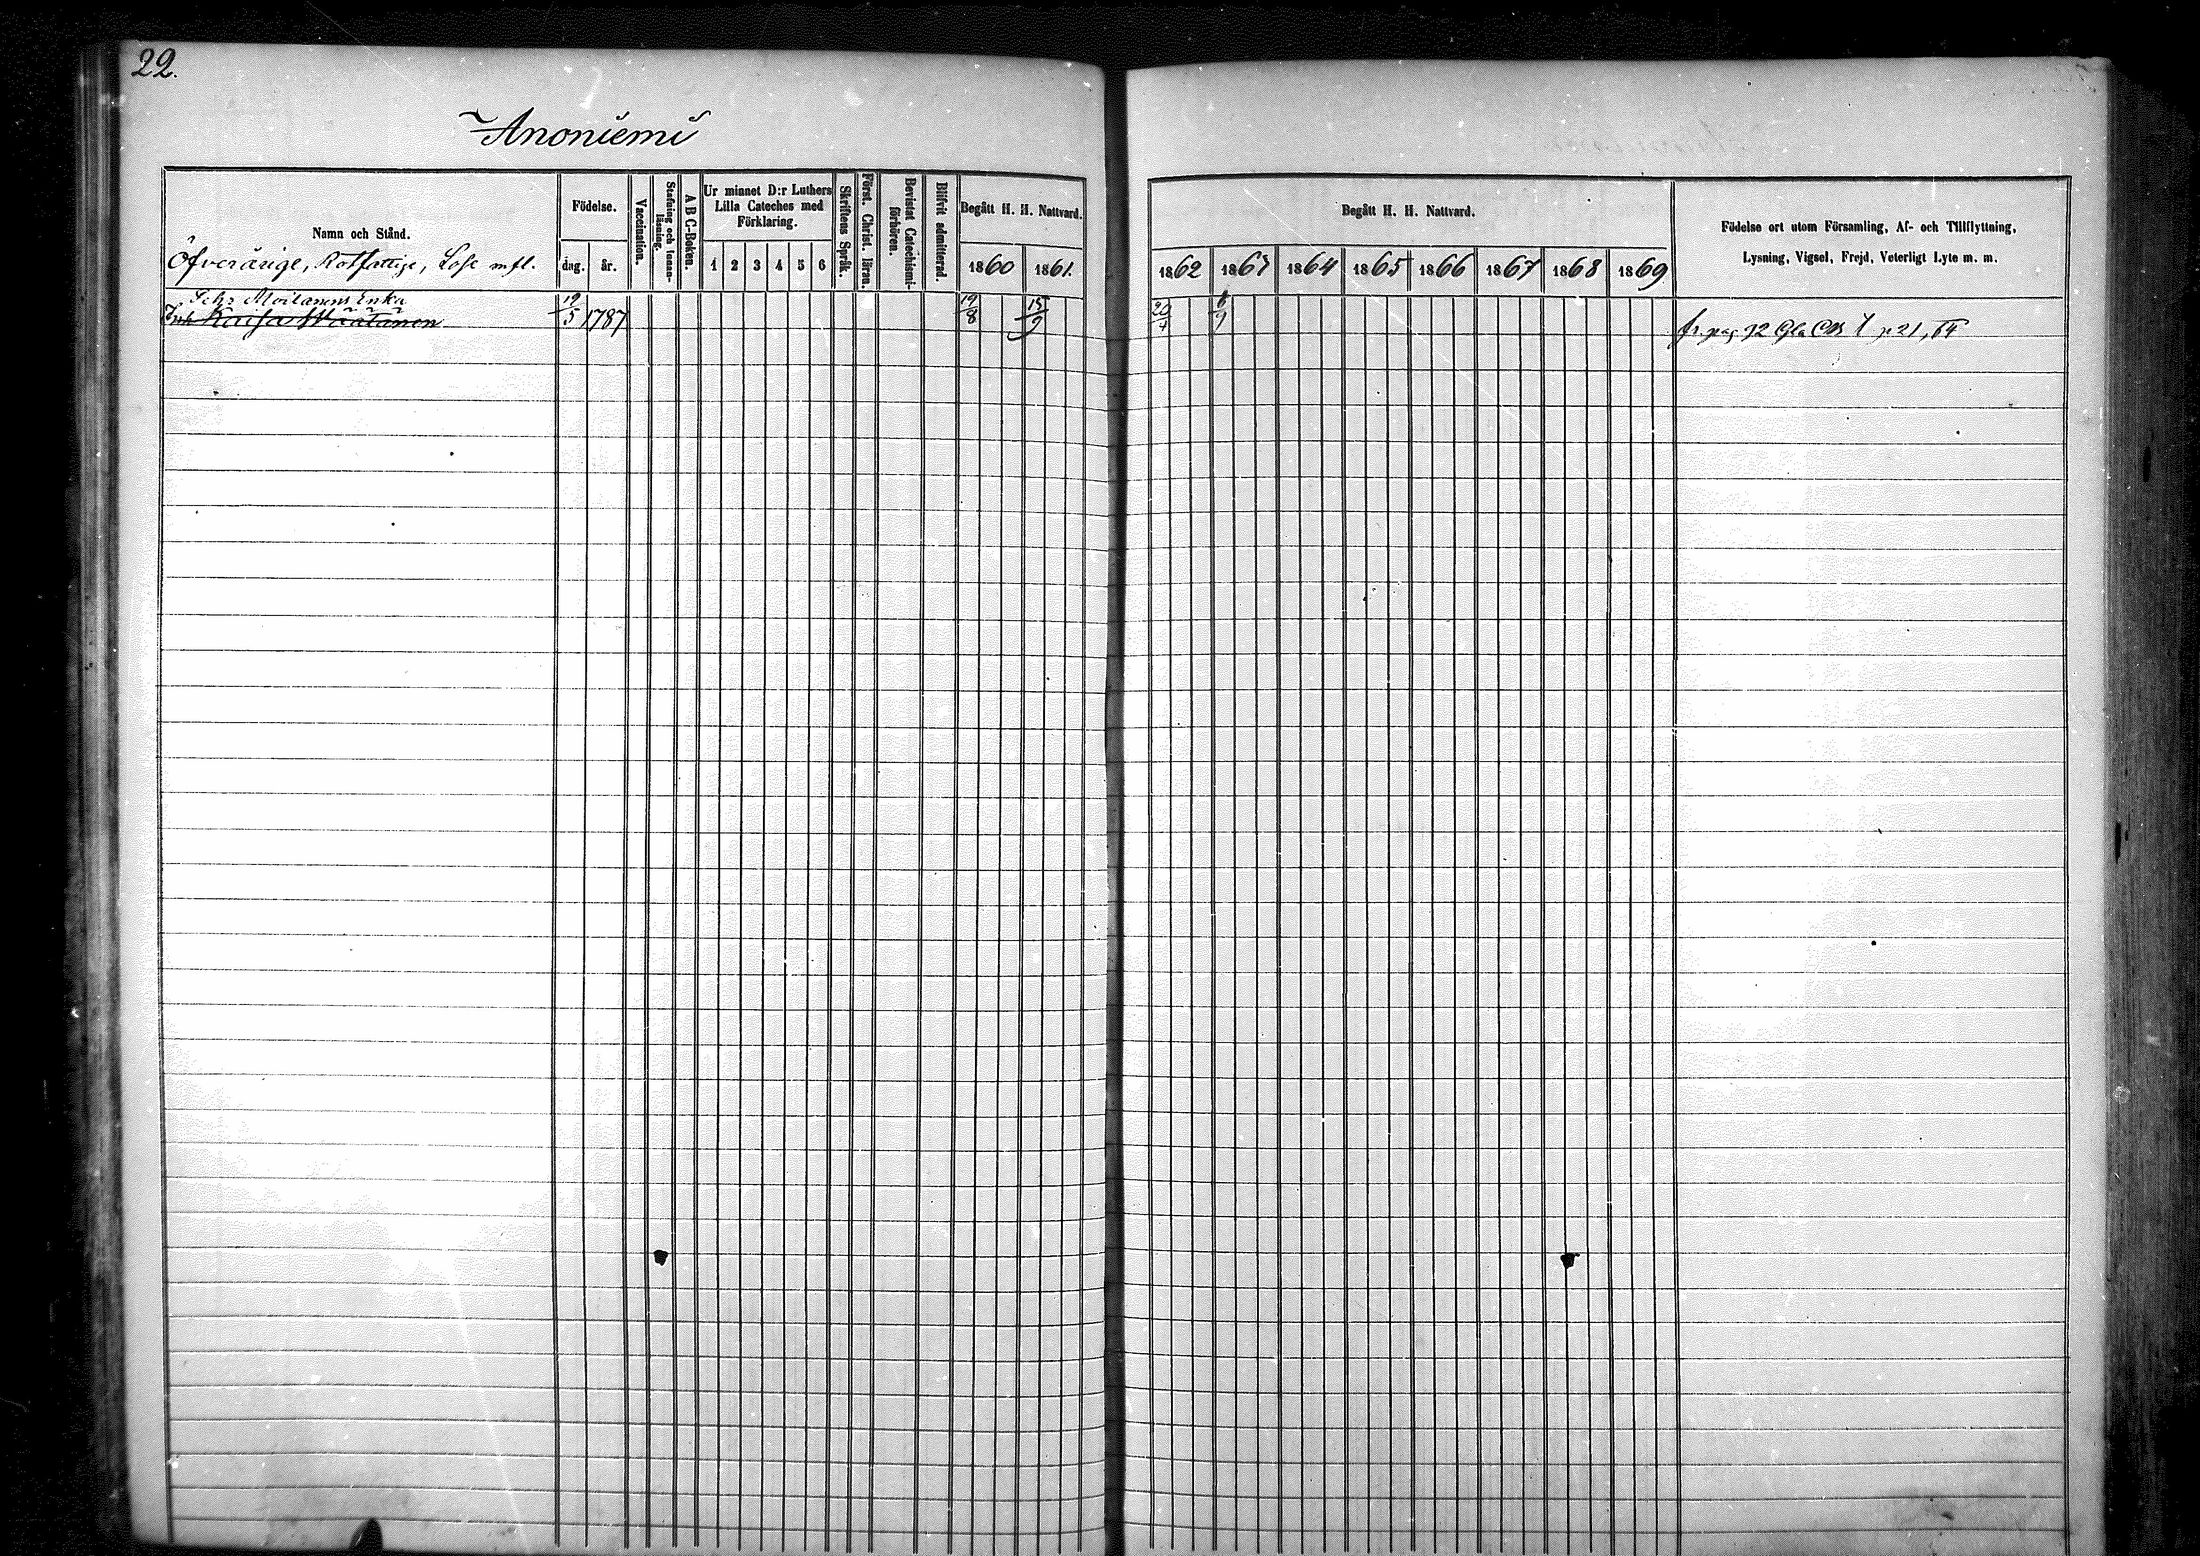 22.
Anoniemi
Namn och Stånd.
Öfverårige, Rotfattige, Lose m fl.
Födelse.
dag. år.
Vaccination.
Stafning och Innan-läsning.
A B C-Boken.
Ur minnet D:r Luthers
Lilla Cateches med
Förklaring.
1 2 3 4 5 6
Skriftens Språk.
Först. Christ. läran.
Bevistat Catechismi-förhören.
Blifvit admitterad.
Begått H. H. Nattvard.
1860 1861.
Begått H. H. Nattvard.
1862 1863 1864 1865 1866 1867 1868 1869
Födelse ort utom Församling, Af- och Tillflyttning,
Lysning, Vigsel, Frejd, Veterligt Lyte m. m.
Moilanens Enka
Kaisa Wäätänen 19/5 1787 19/8 15/9 20/7 6/9 fr. pag. 92 Gla p 21, 64